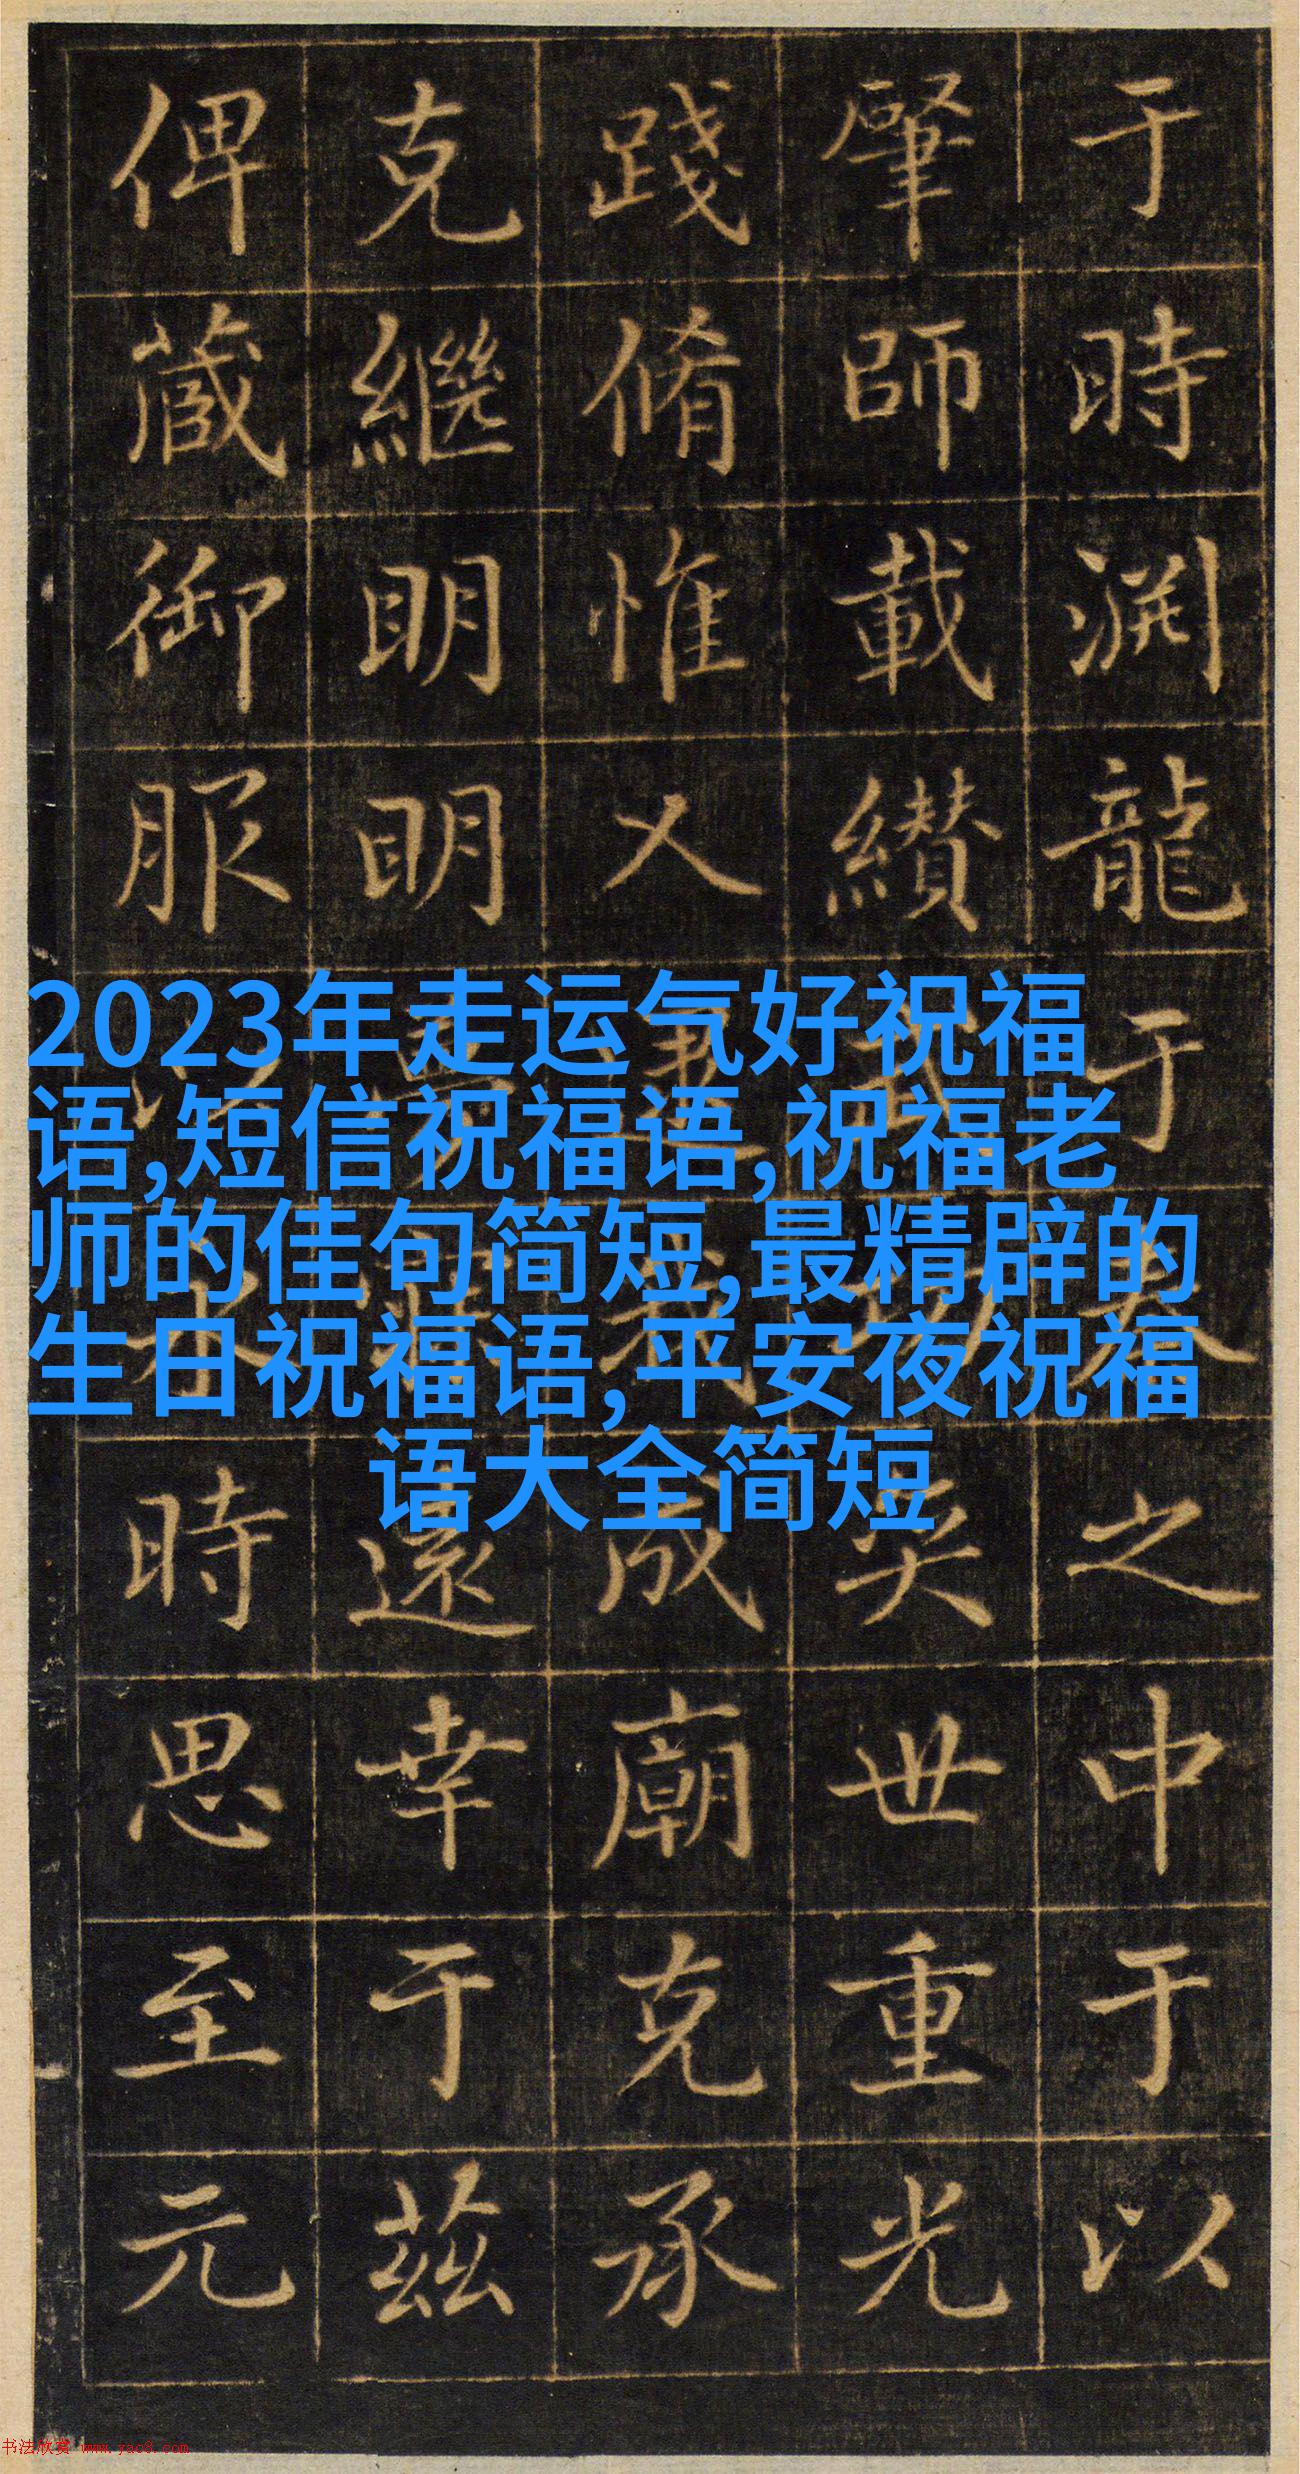 于時淵龍于之中于以
肇師載纘武功奕世重光
踐脩惟乂建成廟克承
克繼明明遠幸于茲
俾蔵御服以永時思至元
2023年走运气好祝福
语,短信祝福语,祝福老
师的佳句简短,最精辟的
生日祝福语,平安夜祝福
语大全简短
书法欣赏 www.yac8.com